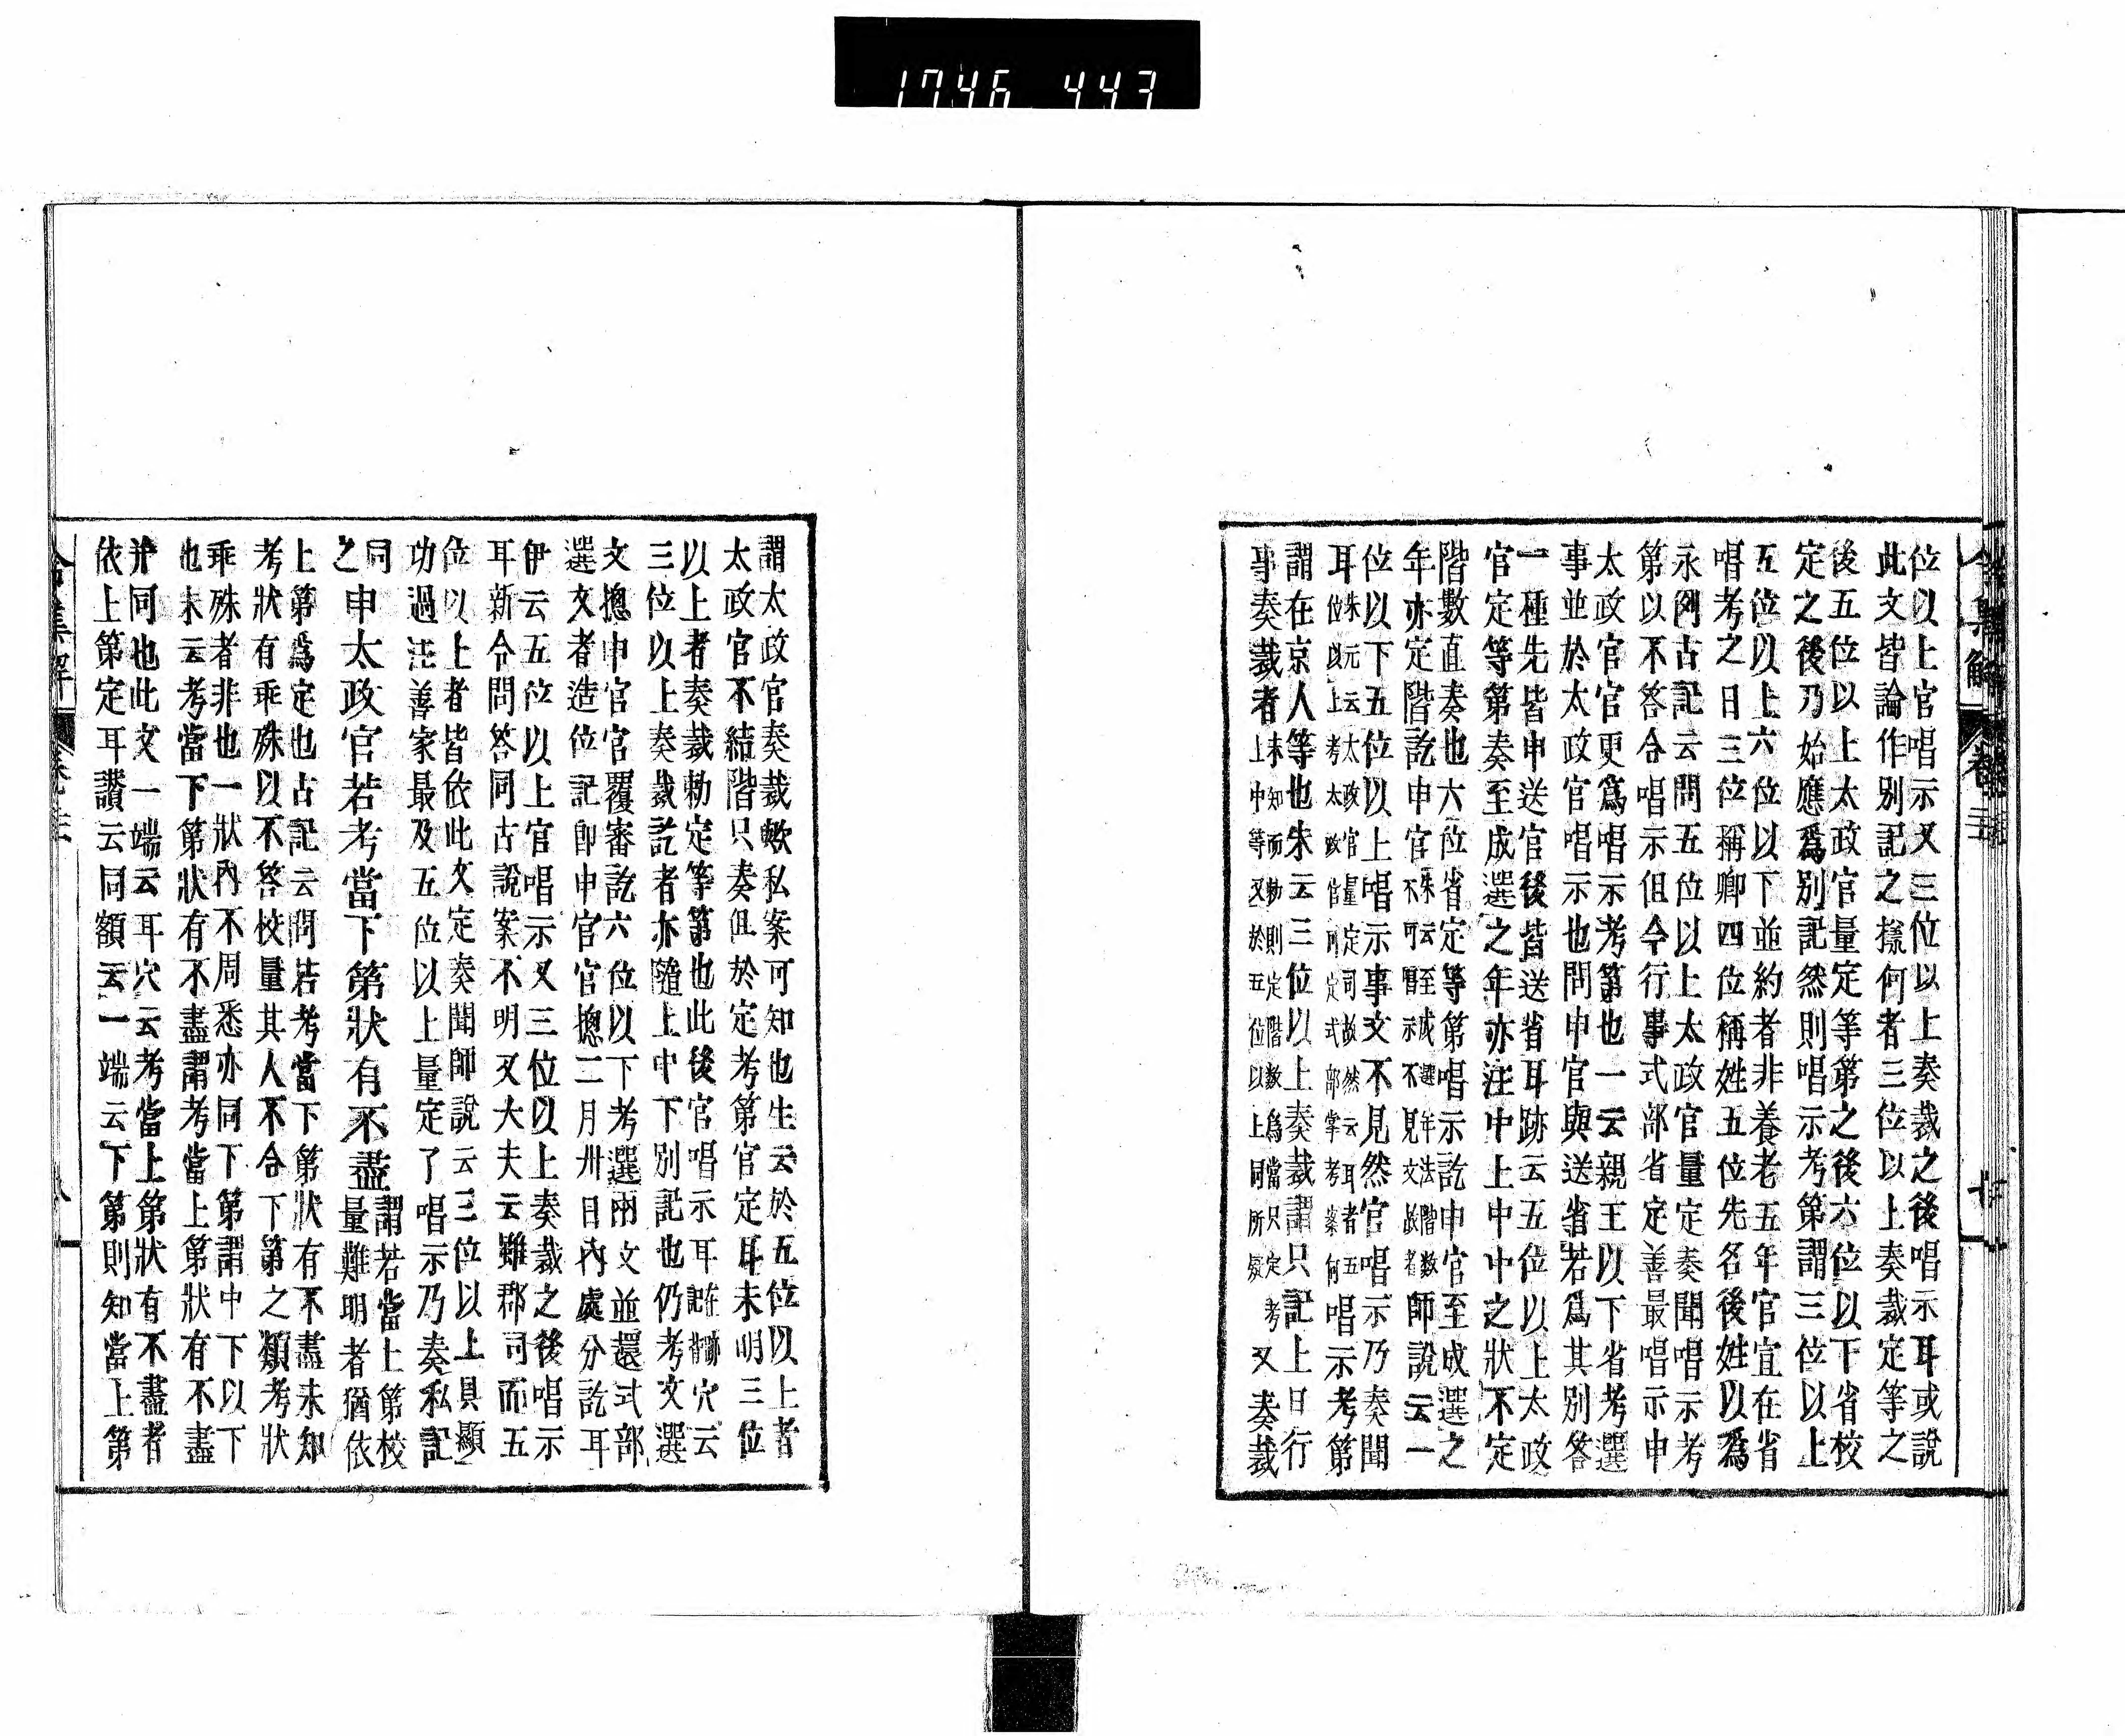 1746 443
令集解 卷三
位以上官唱示又三位以上奏裁之後唱示耳或說
此文皆論作別記之樣何者三位以上奏裁定等之
後五位以上太政官量定等第之後六位以下省校
定之後乃始應爲別記然則唱示考第謂三位以上
五位以上六位以下並約者非養老五年官宣在省
唱考之日三位稱卿四位稱姓五位先名後姓以爲
永例古記云問五位以上太政官量定奏聞唱示考
第以不答合唱示但今行事式部省定善最唱示申
太政官官更爲唱示考第也一云親王以下省考選
事並於太政官唱示也問申官與送省若爲其別答
一種先皆申送官後皆送省耳跡云五位以上太政
官定等第奏至成選之年亦注中上中中之狀不定
階數直奏也六位省定等第唱示訖申官至成選之
年亦定階訖申官朱云至成選年法階數
不可唱示不見文故者師說云一
位以下五位以上唱示事文不見然官唱示乃奏聞
耳朱元云太政官量定司故然云耳者五
位以上考太政官可定式部掌考案何唱示考第
謂在京人等也朱云三位以上奏裁謂只記上日行
事奏裁者未知而勅則定階數爲當只定考
上中等又於五位以上同所疑又奏裁
謂太政官奏裁歟私案可知也生云於五位以上者
太政官不結階只奏但於定考第官定耳未明三位
以上者奏裁勅定等第也此後官唱示耳在背
記穴云
三位以上奏裁訖者亦隨上中下別記也仍考文選
文摠申官官覆審訖六位以下考選兩文並還式部
選文者造位記卽申官官摠二月卅日內處分訖耳
伊云五位以上官唱示又三位以上奏裁之後唱示
耳新令問答同古說案不明又大夫云雖郡司而五
位以上者皆依此文定奏聞師說云三位以上具顯
功過注善家最及五位以上量定了唱示乃奏私記
同
之申太政官若考當下第狀有不盡謂若當上第校
量難明者猶依
上第爲定也古記云問若考當下第狀有不盡未知
考狀有乖殊以不答校量其人不合下第之類考狀
乖殊者非也一狀內不周悉亦同下第謂中下以下
也朱云考當下第狀有不盡謂考當上第狀有不盡
幷同也此文一端云耳穴云考當上第狀有不盡者
依上第定耳讃云同額云一端云下第則知當上第
令集解 卷三